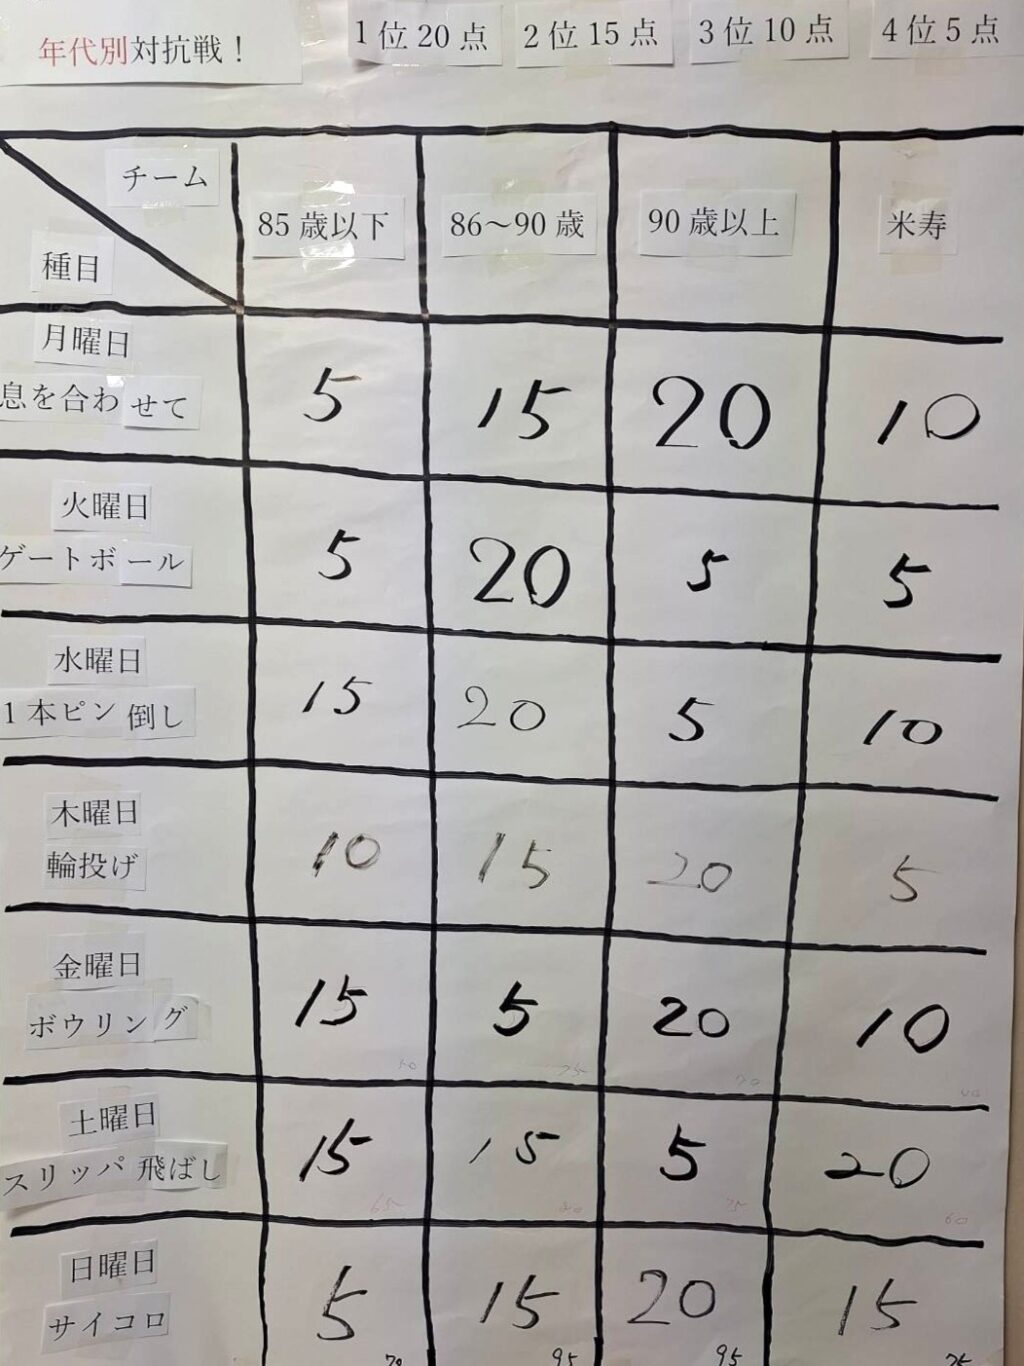 年代別対抗戦！
1位20点 2位15点 3位10点 4位5点
チーム
種目
85歳以下 86〜90歳 90歳以上 米寿
月曜日
息を合わせて
5 15 20 10
火曜日
ゲートボール
5 20 5 5
水曜日
1本ピン倒し
15 20 5 10
木曜日
輪投げ
10 15 20 5
金曜日
ボウリング
15 5 20 10
50 75 70 40
土曜日
スリッパ飛ばし
15 15 5 20
65 75 60
日曜日
サイコロ
5 15 20 15
70 95 95 75